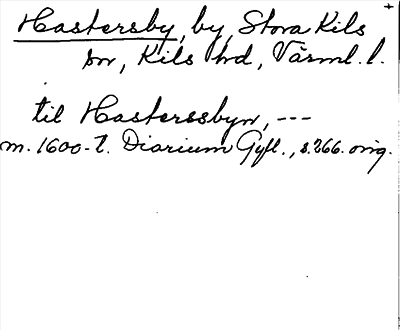 Hastersby, by, Stora Kils
sn, Kils hd, Värml. l.
til Hasterssbyn, ---
m. 1600-t. Diarium Gyll., s. 266. orig.